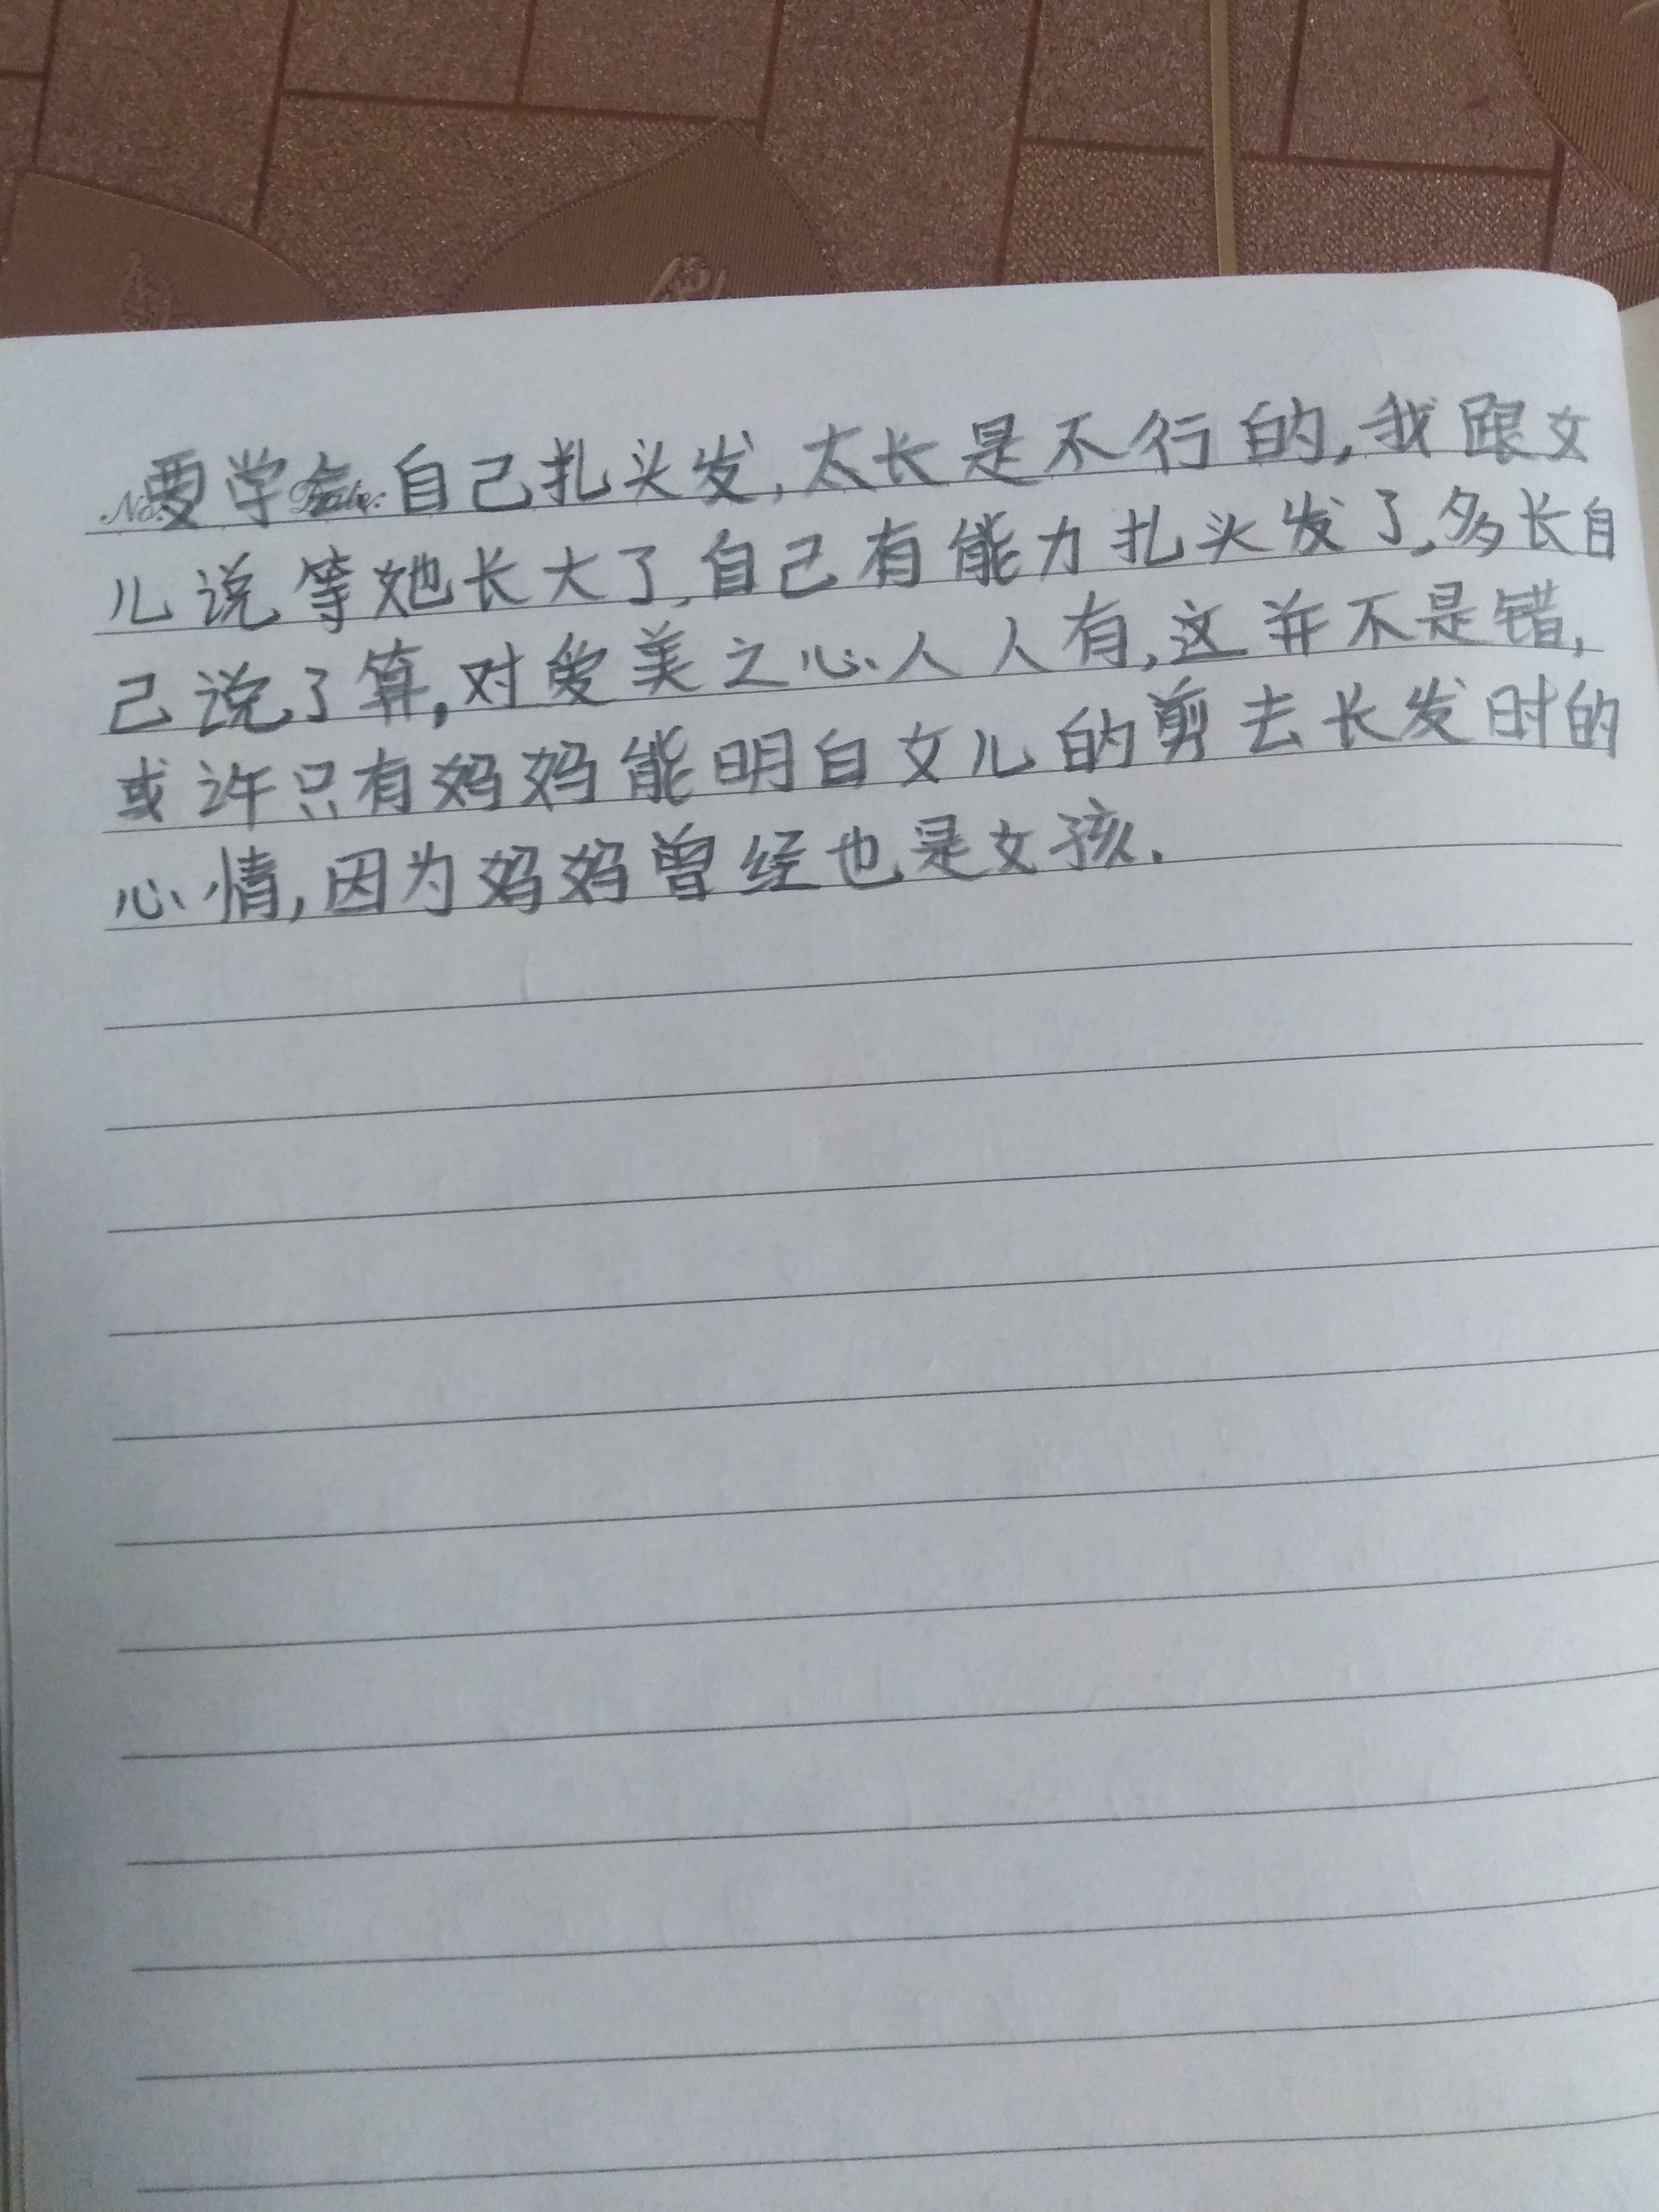 要学会自己扎头发,太长是不行的,我跟女
儿说等她长大了,自己有能力扎头发了,多长自
己说了算,对爱美之心人人有,这并不是错,
或许只有妈妈能明白女儿的剪去长发时的
心情,因为妈妈曾经也是女孩.